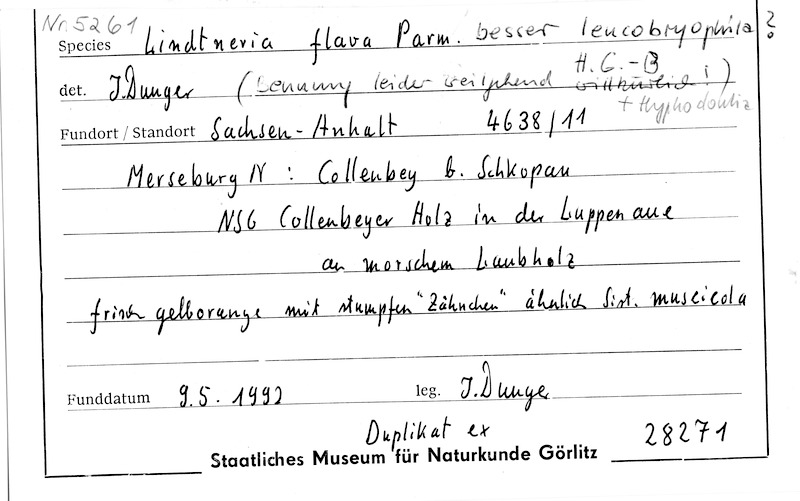 Nr. 5261
Species Lindtneria flava Parm. besser leucobryophila ?
det. I. Dunger (Benennung leider weitgehend willkürlich !) H. G.-B
+ Hyphodontia
Fundort / Standort Sachsen-Anhalt 4638/11
Merseburg N : Collenbey b. Schkopau
NSG Collenbeyer Holz in der Luppenaue
an morschem Laubholz
frisch gelborange mit stumpfen "Zähnchen" ähnlich Sist. muscicola
Funddatum 9.5.1992 leg. I. Dunger
Duplikat ex 28271
Staatliches Museum für Naturkunde Görlitz